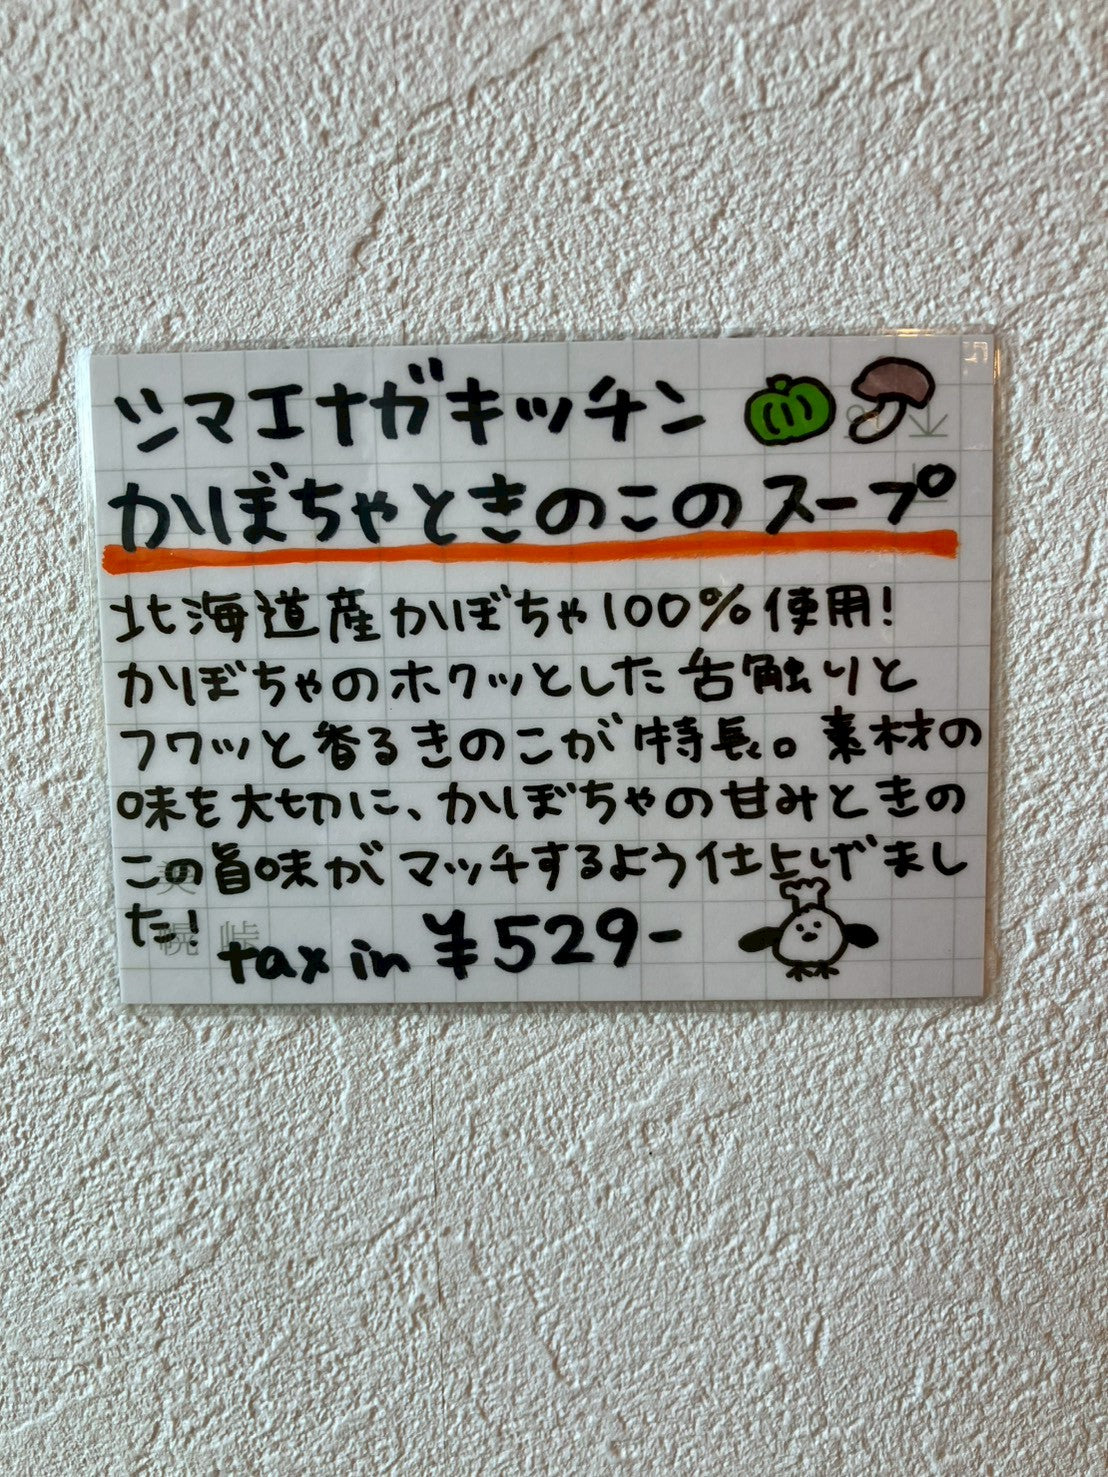 シマエナガキッチン
かぼちゃときのこのスープ
北海道産かぼちゃ100%使用!
かぼちゃのホクッとした舌触りと
フワッと香るきのこが特長。素材の
味を大切に、かぼちゃの甘みときの
この旨味がマッチするよう仕上げまし
た!
tax in ¥529-